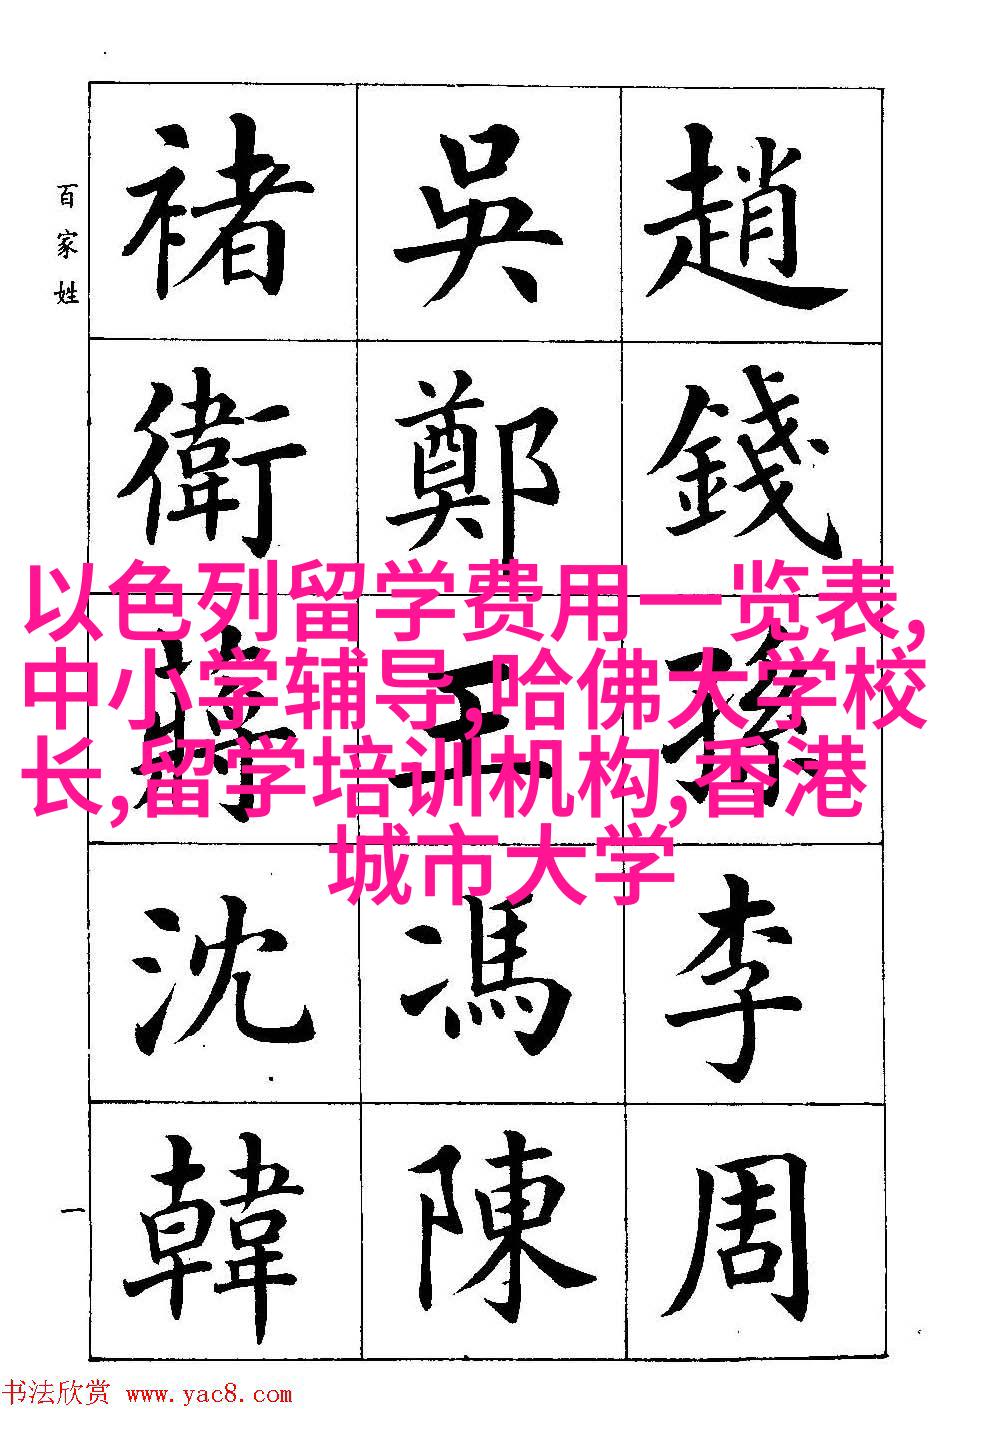 百家姓
趙
錢
孫
李
周
吳
鄭
王
馮
陳
褚
衛
蔣
沈
韓
一
以色列留学费用一览表,
中小学辅导,哈佛大学校
长,留学培训机构,香港
城市大学
书法欣赏 www.yac8.com